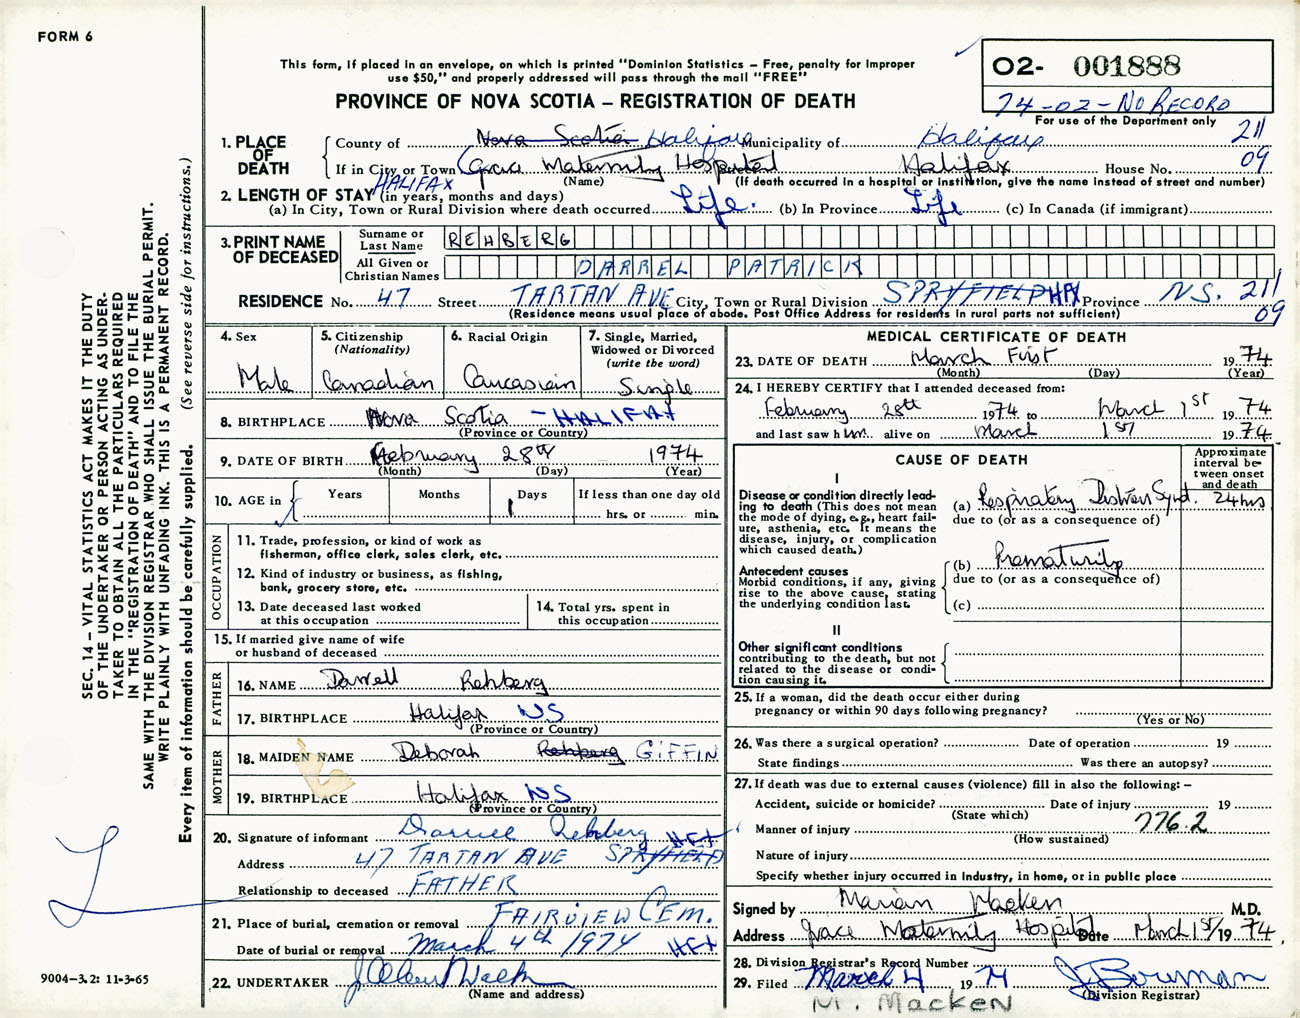 FORM 6
This form, if placed in an envelope, on which is printed "Dominion Statistics – Free, penalty for improper
use $50," and properly addressed will pass through the mail "FREE"
PROVINCE OF NOVA SCOTIA – REGISTRATION OF DEATH
O2- 001888
74-02-NO RECORD
For use of the Department only
1. PLACE OF DEATH
County of Nova Scotia Halifax Municipality of Halifax 211
If in City or Town Grace Maternity Hospital Halifax House No. 09
HALIFAX (Name) (If death occurred in a hospital or institution, give the name instead of street and number)
2. LENGTH OF STAY (in years, months and days)
(a) In City, Town or Rural Division where death occurred Life. (b) In Province Life (c) In Canada (if immigrant)
3. PRINT NAME OF DECEASED
Surname or Last Name REHBERG
All Given or Christian Names DARREL PATRICK
RESIDENCE No. 47 Street TARTAN AVE City, Town or Rural Division SPRYFIELD HFX Province N.S. 211
(Residence means usual place of abode. Post Office Address for residents in rural parts not sufficient) 09
4. Sex Male
5. Citizenship (Nationality) Canadian
6. Racial Origin Caucasian
7. Single, Married, Widowed or Divorced (write the word) Single
8. BIRTHPLACE Nova Scotia - HALIFAX
(Province or Country)
9. DATE OF BIRTH February 28th 1974
(Month) (Day) (Year)
10. AGE in Years Months Days 1 If less than one day old
hrs. or min.
OCCUPATION
11. Trade, profession, or kind of work as
fisherman, office clerk, sales clerk, etc.
12. Kind of industry or business, as fishing,
bank, grocery store, etc.
13. Date deceased last worked
at this occupation
14. Total yrs. spent in
this occupation
15. If married give name of wife
or husband of deceased
FATHER
16. NAME Darrell Rehberg
17. BIRTHPLACE Halifax NS
(Province or Country)
MOTHER
18. MAIDEN NAME Deborah Rehberg GIFFIN
19. BIRTHPLACE Halifax NS
(Province or Country)
20. Signature of informant Darrell Rehberg HFX
Address 47 TARTAN AVE SPRYFIELD
Relationship to deceased FATHER
21. Place of burial, cremation or removal FAIRVIEW CEM.
Date of burial or removal March 4th 1974 HFX
22. UNDERTAKER
(Name and address)
MEDICAL CERTIFICATE OF DEATH
23. DATE OF DEATH March First 1974
(Month) (Day) (Year)
24. I HEREBY CERTIFY that I attended deceased from:
February 28th 1974 to March 1st 1974
and last saw him alive on March 1st 1974
CAUSE OF DEATH
Approximate interval between onset and death
I
Disease or condition directly leading to death (This does not mean the mode of dying, e.g., heart failure, asthenia, etc. It means the disease, injury, or complication which caused death.)
(a) Respiratory Distress Synd. 24hrs
due to (or as a consequence of)
Antecedent causes
Morbid conditions, if any, giving rise to the above cause, stating the underlying condition last.
(b) Prematurity
due to (or as a consequence of)
(c)
II
Other significant conditions
contributing to the death, but not related to the disease or condition causing it.
25. If a woman, did the death occur either during
pregnancy or within 90 days following pregnancy?
(Yes or No)
26. Was there a surgical operation? Date of operation 19
State findings Was there an autopsy?
27. If death was due to external causes (violence) fill in also the following: –
Accident, suicide or homicide? Date of injury 19
(State which)
Manner of injury 776.2
(How sustained)
Nature of injury
Specify whether injury occurred in industry, in home, or in public place
Signed by Marian Macken M.D.
Address Grace Maternity Hospital Date March 1st/1974.
28. Division Registrar's Record Number
29. Filed March 4 1974 J Bowman
(Division Registrar)
M. MACKEN
SEC. 14 – VITAL STATISTICS ACT MAKES IT THE DUTY
OF THE UNDERTAKER OR PERSON ACTING AS UNDER-
TAKER TO OBTAIN ALL THE PARTICULARS REQUIRED
IN THE "REGISTRATION OF DEATH" AND TO FILE THE
SAME WITH THE DIVISION REGISTRAR WHO SHALL ISSUE THE BURIAL PERMIT.
WRITE PLAINLY WITH UNFADING INK. THIS IS A PERMANENT RECORD.
Every item of information should be carefully supplied. (See reverse side for instructions.)
9004-3.2: 11-3-65